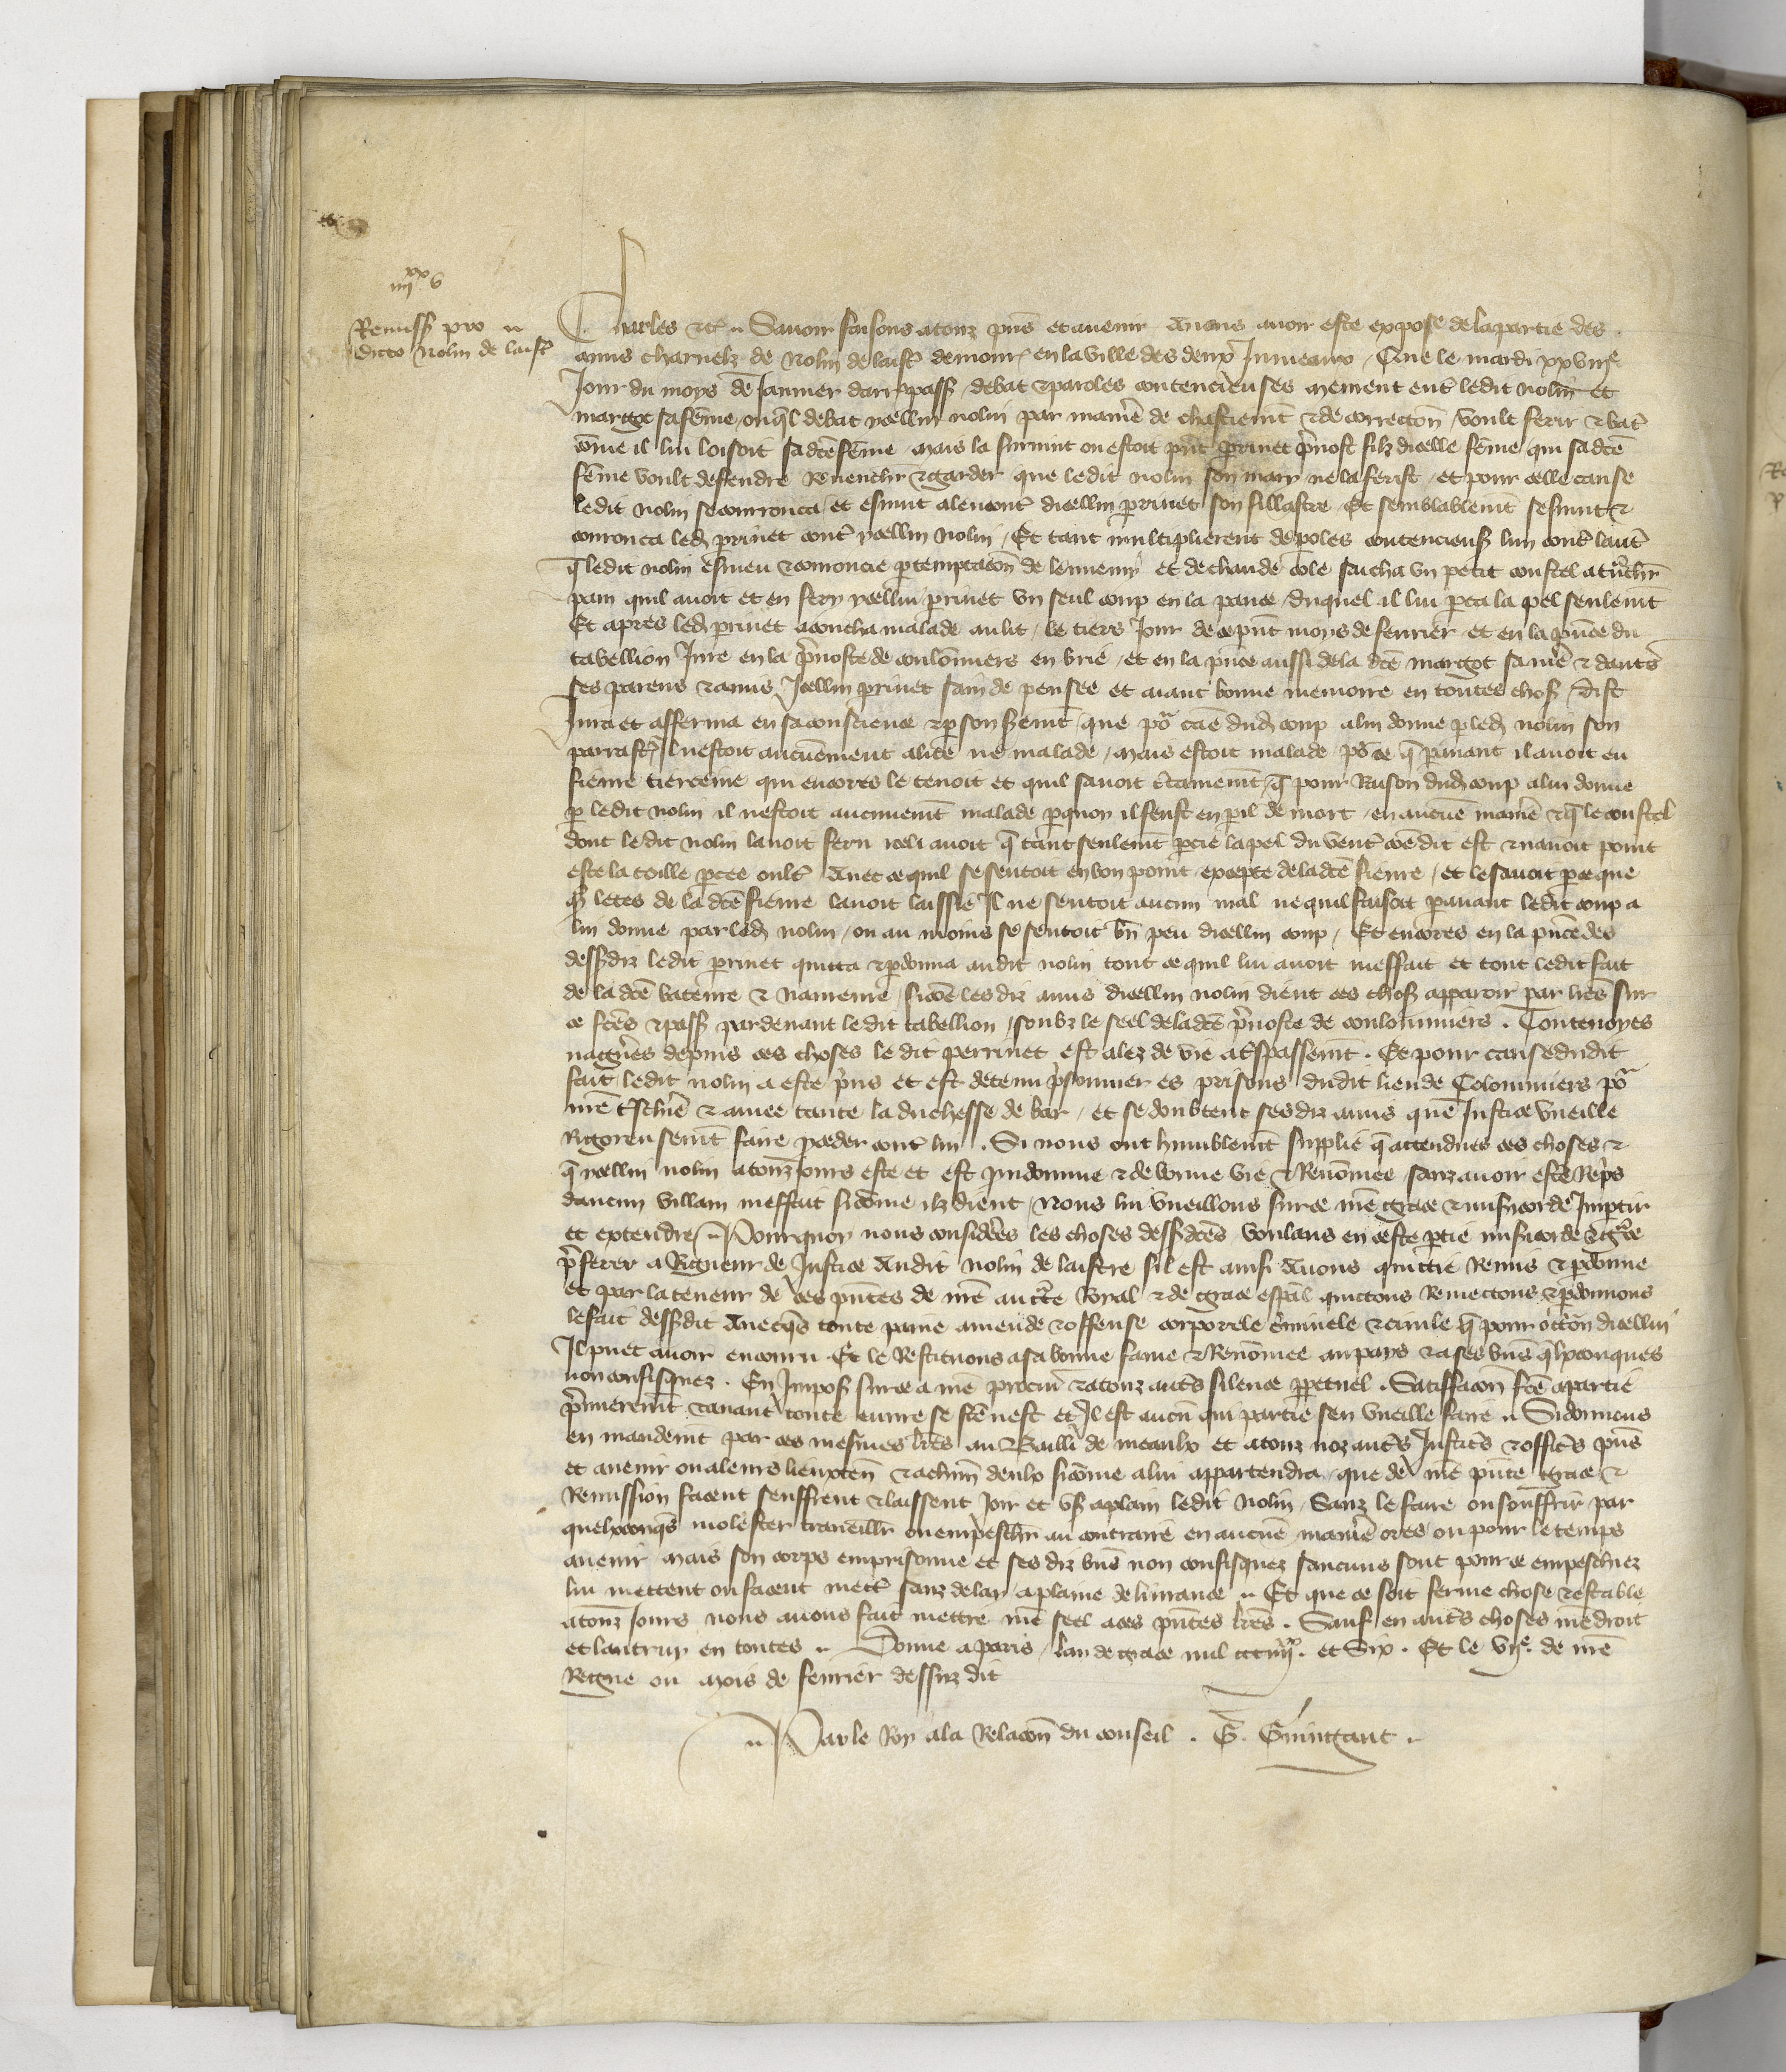 iiij xx v
Remiss pro
dicto Nolin de laistr̃
Charles etc̃. Savoir faisons a touz p̃ns et avenir Anous avoir este expose de la partie des
amis charnelz de Nolin de laistr̃ demour̃ en la ville des deux Jumeaux, Que le mardi xxviije
Jour du moys de Janvier darr̃ pass̃ debat et paroles contencieuses meurent ent̃ ledit Nolin et
Margot sa fem̃e, ou q̃l debat ycellui Nolin par manier̃ de chastiem̃t et de correction voult ferir et bat̃r
com̃e il lui loisoit sa dc̃e fem̃e Mais la survint ou estoit p̃nt Perrinet P̃vost filz dicelle fem̃e qui sa dc̃e
fem̃e voult deffendre Revenchr̃ et garder que ledit Nolin son mary ne la ferist, et pour celle cause
ledit Nolin se courouca et esmut alencont̃ dicellui Perrinet son fillastre Et semblablem̃t sesmut et
courouca led. Perrinet cont̃ ycellui Nolin, Et tant multiplierent de p̃oles contencieus̃ lun cont̃ laut̃
q̃ ledit Nolin esmeu et couroucie p temptac̃on de lennemi et de chaude cole sacha un petit coustel a trẽchr̃
pain quil avoit et en fery ycellui Perrinet un seul coup en la pance, duquel il lui perca la pel seulem̃t
Et apres led. Perrinet acoucha malade au lit, le tiers Jour de ce p̃nt moys de fevrier et en la p̃nce du
tabellion Jure en la P̃voste de coulom̃iers en brie, et en la p̃nce aussi de la dc̃e Margot sa mer̃ et dautr̃s
ses parens et amis Icellui Perrinet sain de pensee et aiant bonne memoire en toutes chos̃, dist
Jura et afferma en sa conscience et p son serem̃t, que po͛r cause dud. coup a lui donne p led. Nolin son
parrastr̃, Il nestoit aucunement alide ne malade, Mais estoit malade po͛r ce q̃ p̃avant il avoit eu
fievre tiercenne qui encores le tenoit et quil savoit c̃tainem̃t, q̃ pour Raison dud. coup a lui donne
p ledit Nolin il nestoit aucunem̃t malade p quoy il feust en p̃il de mort, en aucune manier̃ et q̃ le coustel
dont ledit Nolin lavoit feru navoit q̃ tant seulem̃t percie la pel du vent̃ com̃e dit est et navoit point
este la toille p̃cee oult̃ Avec ce quil se sentoit en bon point excepte de la dc̃e fievre, et le savoit p ce que
q̃nt lacces de la dc̃e fievre lavoit laissie Il ne sentoit aucun mal ne quil faisoit p̃avant ledit coup a
lui donne par led. Nolin, ou au moins se sentoit bn̄ peu dicellui coup, Et encores en la p̃nce des
dessusdiz ledit Perrinet quitta et p̃donna audit Nolin tout ce quil lui avoit meffait et tout ledit fait
de la dc̃e bateure et navreure, sicom̃e les diz amis dicellui Nolin dient ces chos̃ apparoir par lr̃es sur
ce fc̃es et pass̃ pardevant ledit tabellion, soubz le seel de la dc̃e P̃voste de coulommiers. Toutevoyes
nagues̃ depuis ces choses ledit Perrinet est alez de vie a tr̃spassem̃t. Et pour cause dudit
fait ledit Nolin a este p̃ns et est detenu prisonnier es prisons dudit lieu de Colommiers po͛r
nr̃e tresch̃re et amee tante la duchesse de bar, et se doubtent sesdiz amis que Justice vueille
Rigoreusem̃t faire proceder cont̃ lui. Si nous ont humblem̃t supplie q̃ attendues ces choses et
q̃ ycellui Nolin a touzjours este et est preudomme et de bonne vie et Renom̃ee sanz avoir este Rep̃s
daucun villain meffait sicom̃e ilz dient, Nous lui vueillons sur ce nr̃e grace et misericorde Imp̃tir
et extendre, Pourquoy nous consideres̃ les choses dessusdc̃es voulans en ceste p̃tie misericorde et grace
p̃ferer a Rigueur de Justice Audit Nolin de laistre sil est ainsi Avons quittie Remis et p̃donne
et par la teneur de ces p̃ntes de nr̃e auct̃e Royal et de grace esp̃al quictons Remectons et p̃donnons
le fait dessusdit Avecq̃s toute paine amende et offense corporele criminele et civile q̃ pour occ̃on dicellui
Il puet avoir encouru. Et le Restituons a sa bonne fame et Renom̃ee au pays et a ses biens q̃lxconques
non confisquez. En Impos̃ sur ce a nr̃e procur̃ et a touz autr̃s silence perpetuel. Satisfac̃on fc̃e a partie
p̃mierem̃t et avant toute euvre se fc̃e nest et Il est aucun qui partie sen vueille faire. Si donnons
en mandem̃t par ces mesmes lr̃es au Bailli de meaulx et a touz noz autr̃s Justic̃s et offic̃s p̃ns
et avenir ou a leurs lieuxten̄ et a chũn deulx sicom̃e a lui appartendra, que de nr̃e p̃nte grace et
Remission facent seuffrent et laissent Joir et us̃ aplain ledit Nolin, Sanz le faire ou souffrir par
quelxconq̃s molester traveillr̃ ou empeschr̃ au contraire en aucune manier̃ ores ou pour le temps
avenir Mais son corps emprisonne et ses diz biens non confisquez saucuns sont pour ce empeschiez
lui mettent ou facent mett̃ sanz delay a plaine delivrance. Et que ce soit ferme chose et estable
a touz Jours nous avons fait mettre nr̃e seel a ces p̃ntes lr̃es. Sauf en autr̃s choses nr̃e droit
et lautruy en toutes. Donne a paris, lan de grace mil ccc iiij xx. et Six. Et le vije. de nr̃e
Regne ou Mois de fevrier dessuz dit
Par le Roy a la Relac̃on du conseil. G. Guingant.